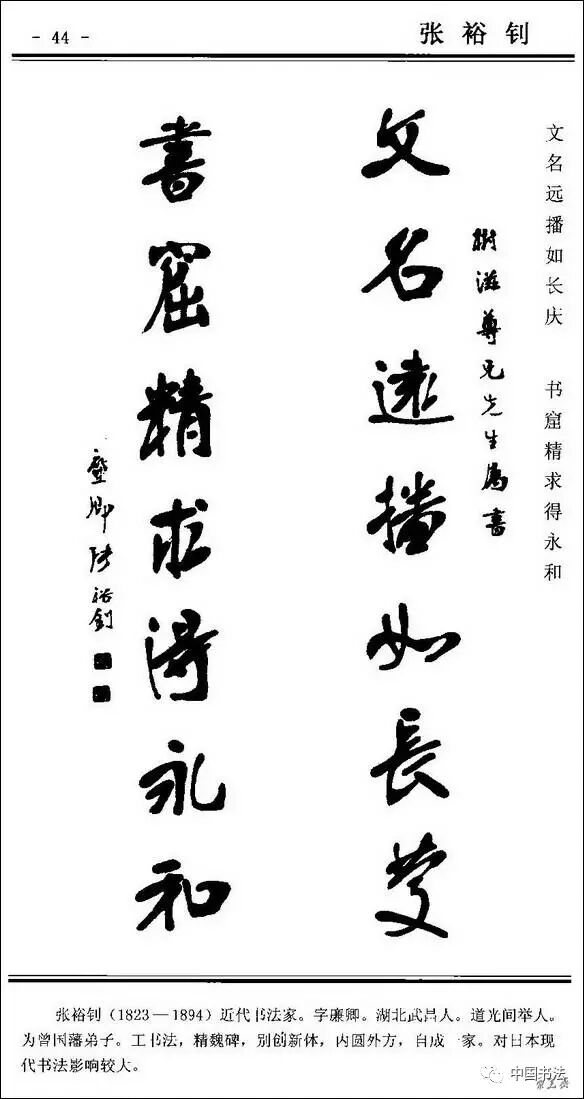 - 44 -
张裕钊
文名远播如长庆 书窟精求得永和
樹滋尊兄先生属書
文名遠播如長慶
書窟精求得永和
廉卿張裕釗
张裕钊（1823—1894）近代书法家。字廉卿。湖北武昌人。道光间举人。
为曾国藩弟子。工书法，精魏碑，别创新体，内圆外方，自成一家。对日本现
代书法影响较大。
中国书法